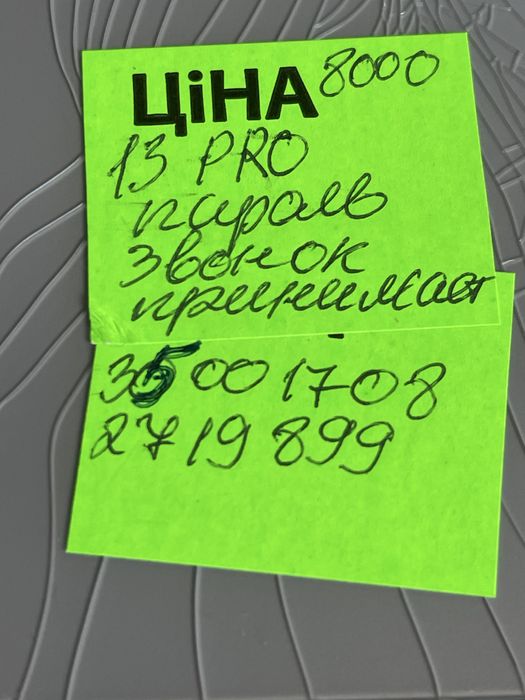 ЦіНА 8000
13 PRO
пароль
звонок
принимает
35 00 1708
27 19 899